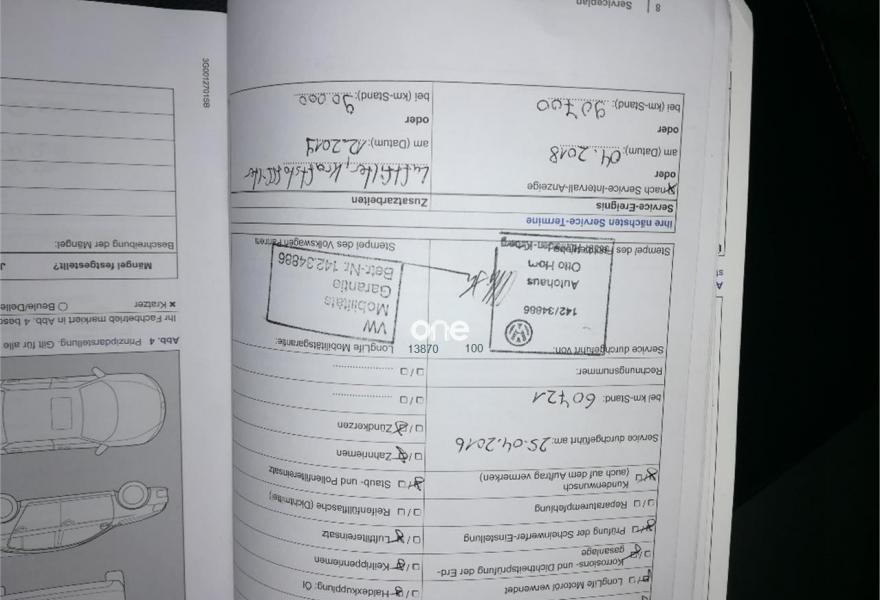 □/□ LongLife Motoröl verwendet
Korrosions- und Dichtheitsprüfung der Erd-
gasanlage
□/□ Prüfung der Scheinwerfer-Einstellung
□/□ Reparaturempfehlung
Kundenwunsch
(auch auf dem Auftrag vermerken)
Service durchgeführt am: 25.04.2016
bei km-Stand: 60721
Rechnungsnummer:
Service durchgeführt von:
13870 100
142/34886
Autohaus
Otto Horn
Stempel des
Haldexkupplung: Öl
Keilrippenriemen
Luftfiltereinsatz
□/□ Reifenfüllflasche (Dichtmittel)
Staub- und Pollenfiltereinsatz
Zahnriemen
Zündkerzen
□/□
□/□
LongLife Mobilitätsgarantie:
VW
Mobilitäts
Garantie
Betr-Nr. 142 34886
Stempel des Volkswagen Partners
one
Ihre nächsten Service-Termine
Service-Ereignis
nach Service-Intervall-Anzeige
oder
am (Datum): 04.2018
oder
bei (km-Stand): 90700
Zusatzarbeiten
Luftfilter, Kraftstofffilter
am (Datum): 12.2017
oder
bei (km-Stand): 90.000
8 | Serviceplan
Abb. 4 Prinzipdarstellung. Gilt für alle
Ihr Fachbetrieb markiert in Abb. 4
× Kratzer ○ Beule/Delle
Mängel festgestellt? J
Beschreibung der Mängel:
3G0012701SB